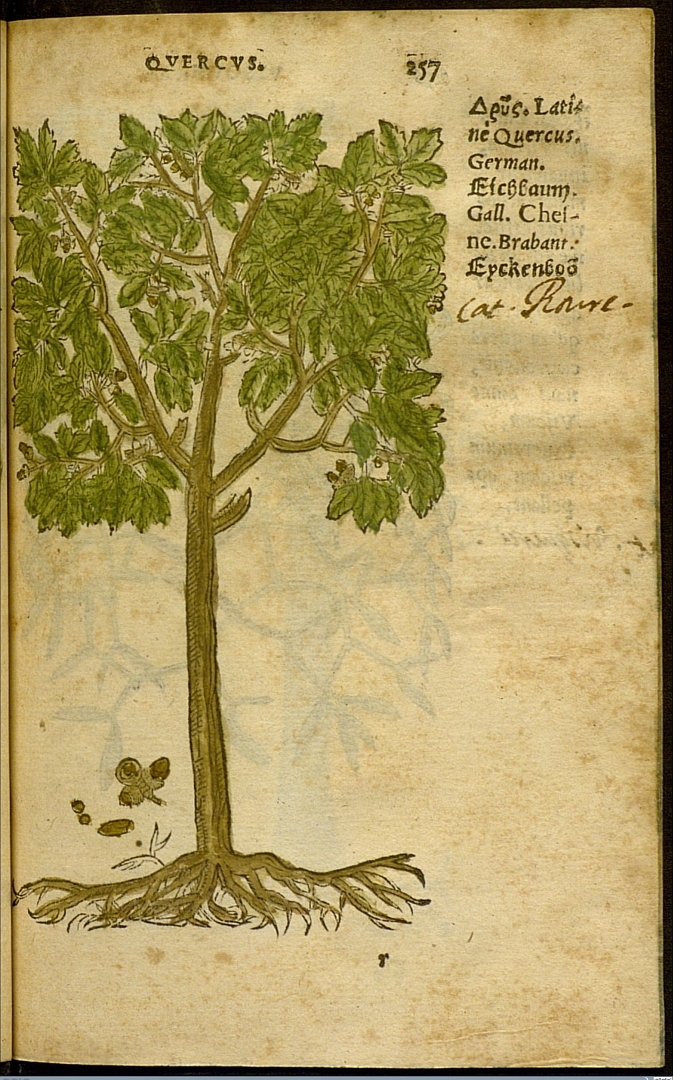 QVERCVS.
257
Δρῦς. Lati-
nè Quercus.
German.
Eichbaum.
Gall. Chei-
ne. Brabant.
Eyckenboō
Cat. Roure-
r